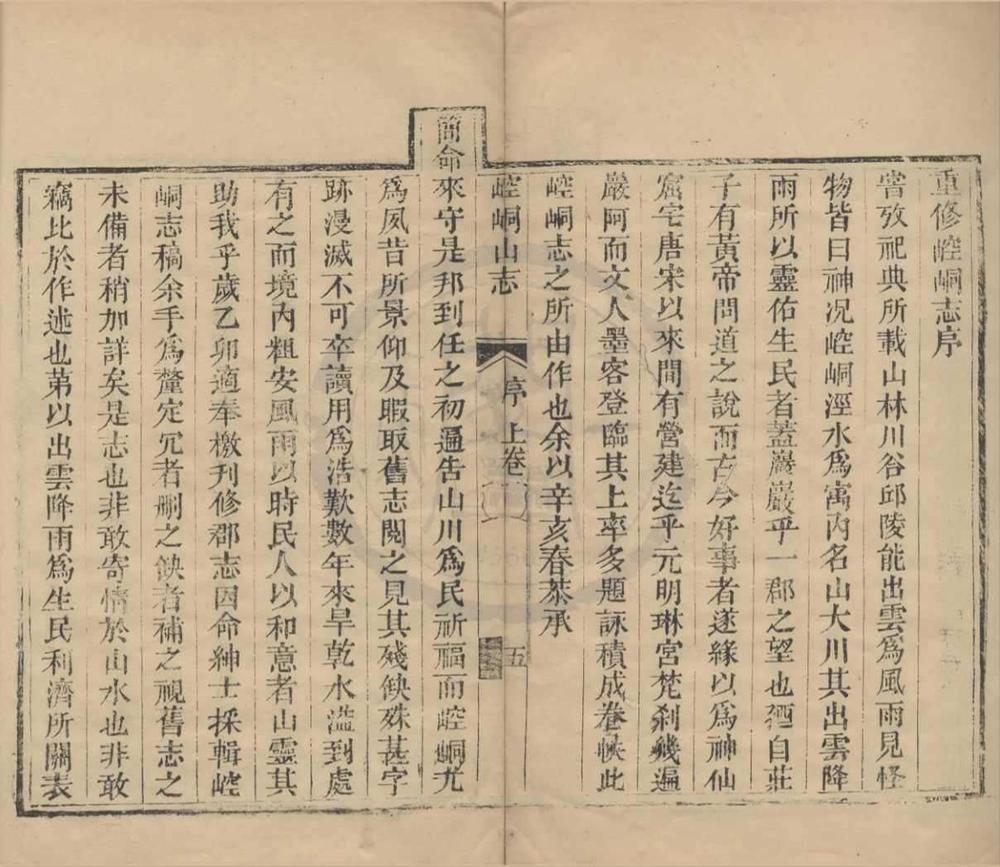 重修崆峒志序
嘗攷祀典所載山林川谷邱陵能出雲爲風雨見怪
物皆曰神况崆峒涇水爲寓内名山大川其出雲降
雨所以靈佑生民者蓋巖巖乎一郡之望也廼自莊
子有黃帝問道之說而古今好事者遂緣以爲神仙
窟宅唐宋以來間有營建迄乎元明琳宮梵刹幾遍
巖阿而文人墨客登臨其上率多題詠積成卷帙此
崆峒志之所由作也余以辛亥春恭承
崆峒山志
序
上卷
五
簡命來守是邦到任之初遍告山川爲民祈福而崆峒尤
爲夙昔所景仰及暇取舊志閱之見其殘缺殊甚字
跡漫滅不可卒讀用爲浩歎數年來旱乾水溢到處
有之而境内粗安風雨以時民人以和意者山靈其
助我乎歲乙卯適奉檄刊修郡志因命紳士採輯崆
峒志稿余手爲釐定冗者刪之缺者補之視舊志之
未備者稍加詳矣是志也非敢寄情於山水也非敢
竊比於作述也第以出雲降雨爲生民利濟所關表